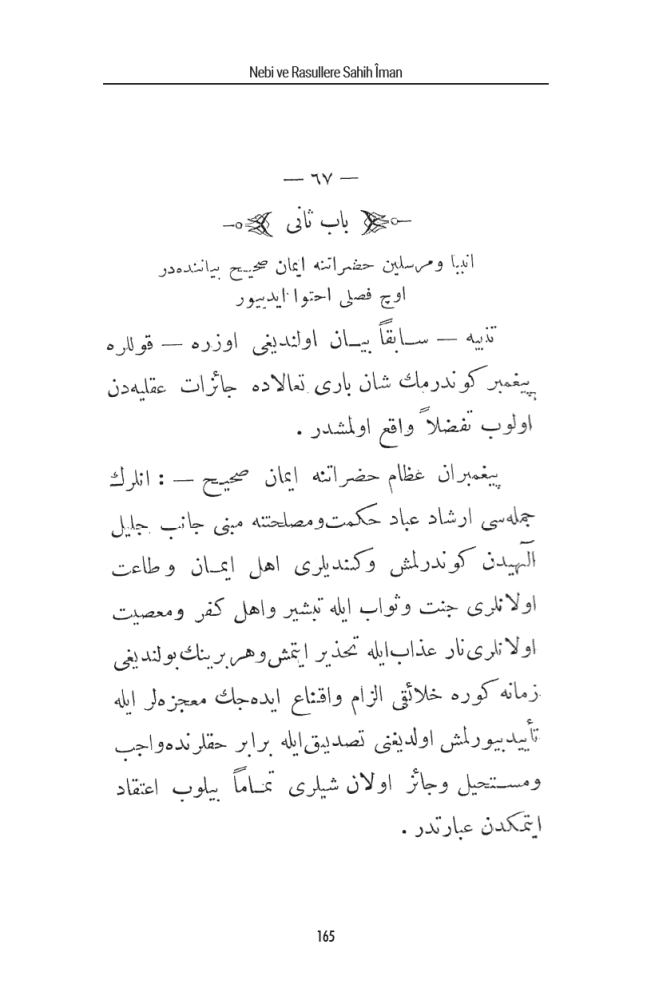 Nebi ve Rasullere Sahih Îman
— ٦٧ —
باب ثانی
انبیا ومرسلین حضراتنه ایمان صحیح بیاننده‌در
اوچ فصلی احتوا ایدییور
تنبیه — سابقاً بیان اولندیغی اوزره — قوللره
پیغمبر کوندرمك شان باری تعالاده جائزات عقلیه‌دن
اولوب تفضلاً واقع اولمشدر .
پیغمبران عظام حضراتنه ایمان صحیح — : انلرك
جمله‌سی ارشاد عباد حکمت ومصلحتنه مبنی جانب جلیل
الٓهیدن کوندرلمش وکندیلری اهل ایمان وطاعت
اولانلری جنت وثواب ایله تبشیر واهل کفر ومعصیت
اولانلری نار عذاب ایله تحذیر ایتمش وهر برینك بولندیغی
زمانه کوره خلائقی الزام واقناع ایده‌جك معجزه‌لر ایله
تأیید بیورلمش اولدیغنی تصدیق ایله برابر حقلرنده واجب
ومستحیل وجائز اولان شیلری تماماً بیلوب اعتقاد
ایتمکدن عبارتدر .
165